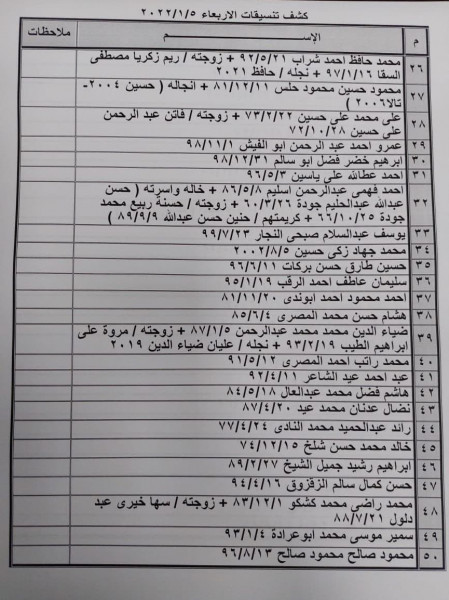 كشف تنسيقات الاربعاء ٢٠٢٢/١/٥
م الإســـم ملاحظات
٢٦ محمد حافظ احمد شراب ٩٢/٥/٢١ + زوجته / ريم زكريا مصطفى
السقا ٩٧/١/١٦ + نجله / حافظ ٢٠٢١
٢٧ محمود حسين محمود حلس ٨١/١٢/١١ + انجاله ( حسين ٢٠٠٤-
تالا ٢٠٠٦ )
٢٨ على محمد على حسين ٧٣/٢/٢٢ + زوجته / فاتن عبد الرحمن
على حسين ٧٢/١٠/٢٨
٢٩ عمرو احمد عبد الرحمن ابو الفيش ٩٨/١١/١
٣٠ ابرهيم خضر فضل ابو سالم ٩٨/١٢/٣١
٣١ احمد عطاالله على ياسين ٩٦/٥/٣
٣٢ احمد فهمى عبدالرحمن اسليم ٨٦/٥/٨ + خاله واسرته ( حسن
عبدالله عبدالحليم جودة ٦٠/٣/٢٦ + زوجته / حسنة ربيع محمد
جودة ٦٦/١٠/٢٥ + كريمتهم / حنين حسن عبدالله ٨٩/٩/٩ )
٣٣ يوسف عبدالسلام صبحى النجار ٩٩/٧/٢٣
٣٤ محمد جهاد زكى حسين ٢٠٠٢/٨/٥
٣٥ حسين طارق حسن بركات ٩٦/٦/١١
٣٦ سليمان عاطف احمد الرقب ٩٥/١/١٩
٣٧ احمد محمود احمد ابوندى ٨١/١١/٢٠
٣٨ هشام حسن محمد المصرى ٨٥/٦/٤
٣٩ ضياء الدين محمد محمد عبدالرحمن ٨٧/١/٥ + زوجته / مروة على
ابراهيم الطيب ٩٣/٢/١٩ + نجله / عليان ضياء الدين ٢٠١٩
٤٠ محمد راتب احمد المصرى ٩١/٥/١٢
٤١ عبد احمد عيد الشاعر ٩٢/٤/١١
٤٢ هاشم فضل محمد عبدالعال ٨٤/٥/١٨
٤٣ نضال عدنان محمد عيد ٨٧/٤/٢٠
٤٤ رائد عبدالحميد محمد النادى ٧٧/٤/٢٤
٤٥ خالد محمد حسن شلخ ٧٤/١٢/١٥
٤٦ ابراهيم رشيد جميل الشيخ ٨٩/٢/٢٧
٤٧ حسن كمال سالم الزقزوق ٩٤/٤/١٦
٤٨ محمد راضى محمد كشكو ٨٣/١٢/١ + زوجته / سها خيرى عبد
دلول ٨٨/٧/٢١
٤٩ سمير موسى محمد ابوعرادة ٩٣/١/٤
٥٠ محمود صالح محمود صالح ٩٦/٨/١٣